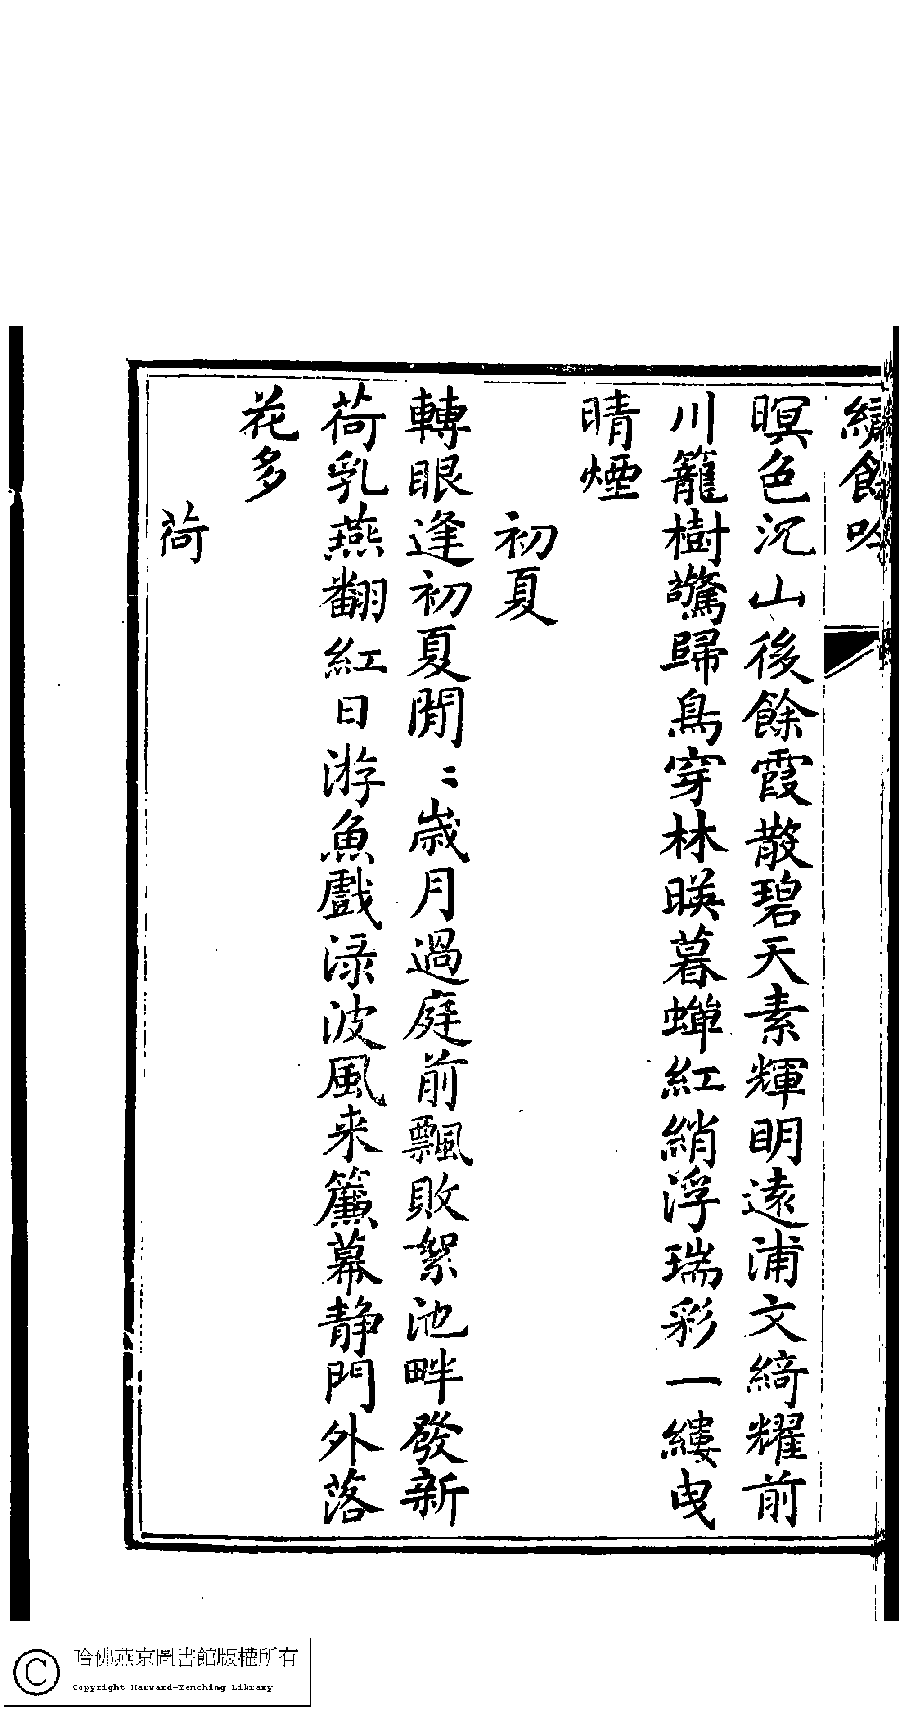 繡餘吟
暝色沉山後餘霞散碧天素輝明遠浦文綺耀前
川籠樹驚歸鳥穿林暎暮蟬紅綃浮瑞彩一縷曳
晴煙
初夏
轉眼逢初夏閒〻歳月過庭前飄敗絮池畔發新
荷乳燕翻紅日游魚戲渌波風来簾幕静門外落
花多
荷
哈佛燕京圖書館版權所有
Copyright Harvard-Yenching Library